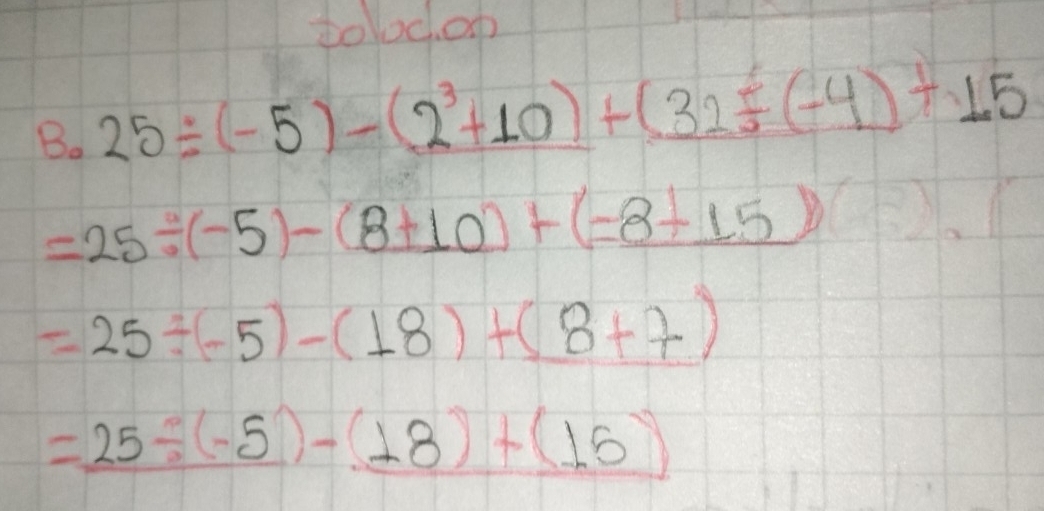 Solucion
B. 25 ÷ (-5) - (2³ + 10) + (32 ÷ (-4) + 15
= 25 ÷ (-5) - (8 + 10) + (-8 + 15)
= 25 ÷ (-5) - (18) + (8 + 7)
= 25 ÷ (-5) - (18) + (15)